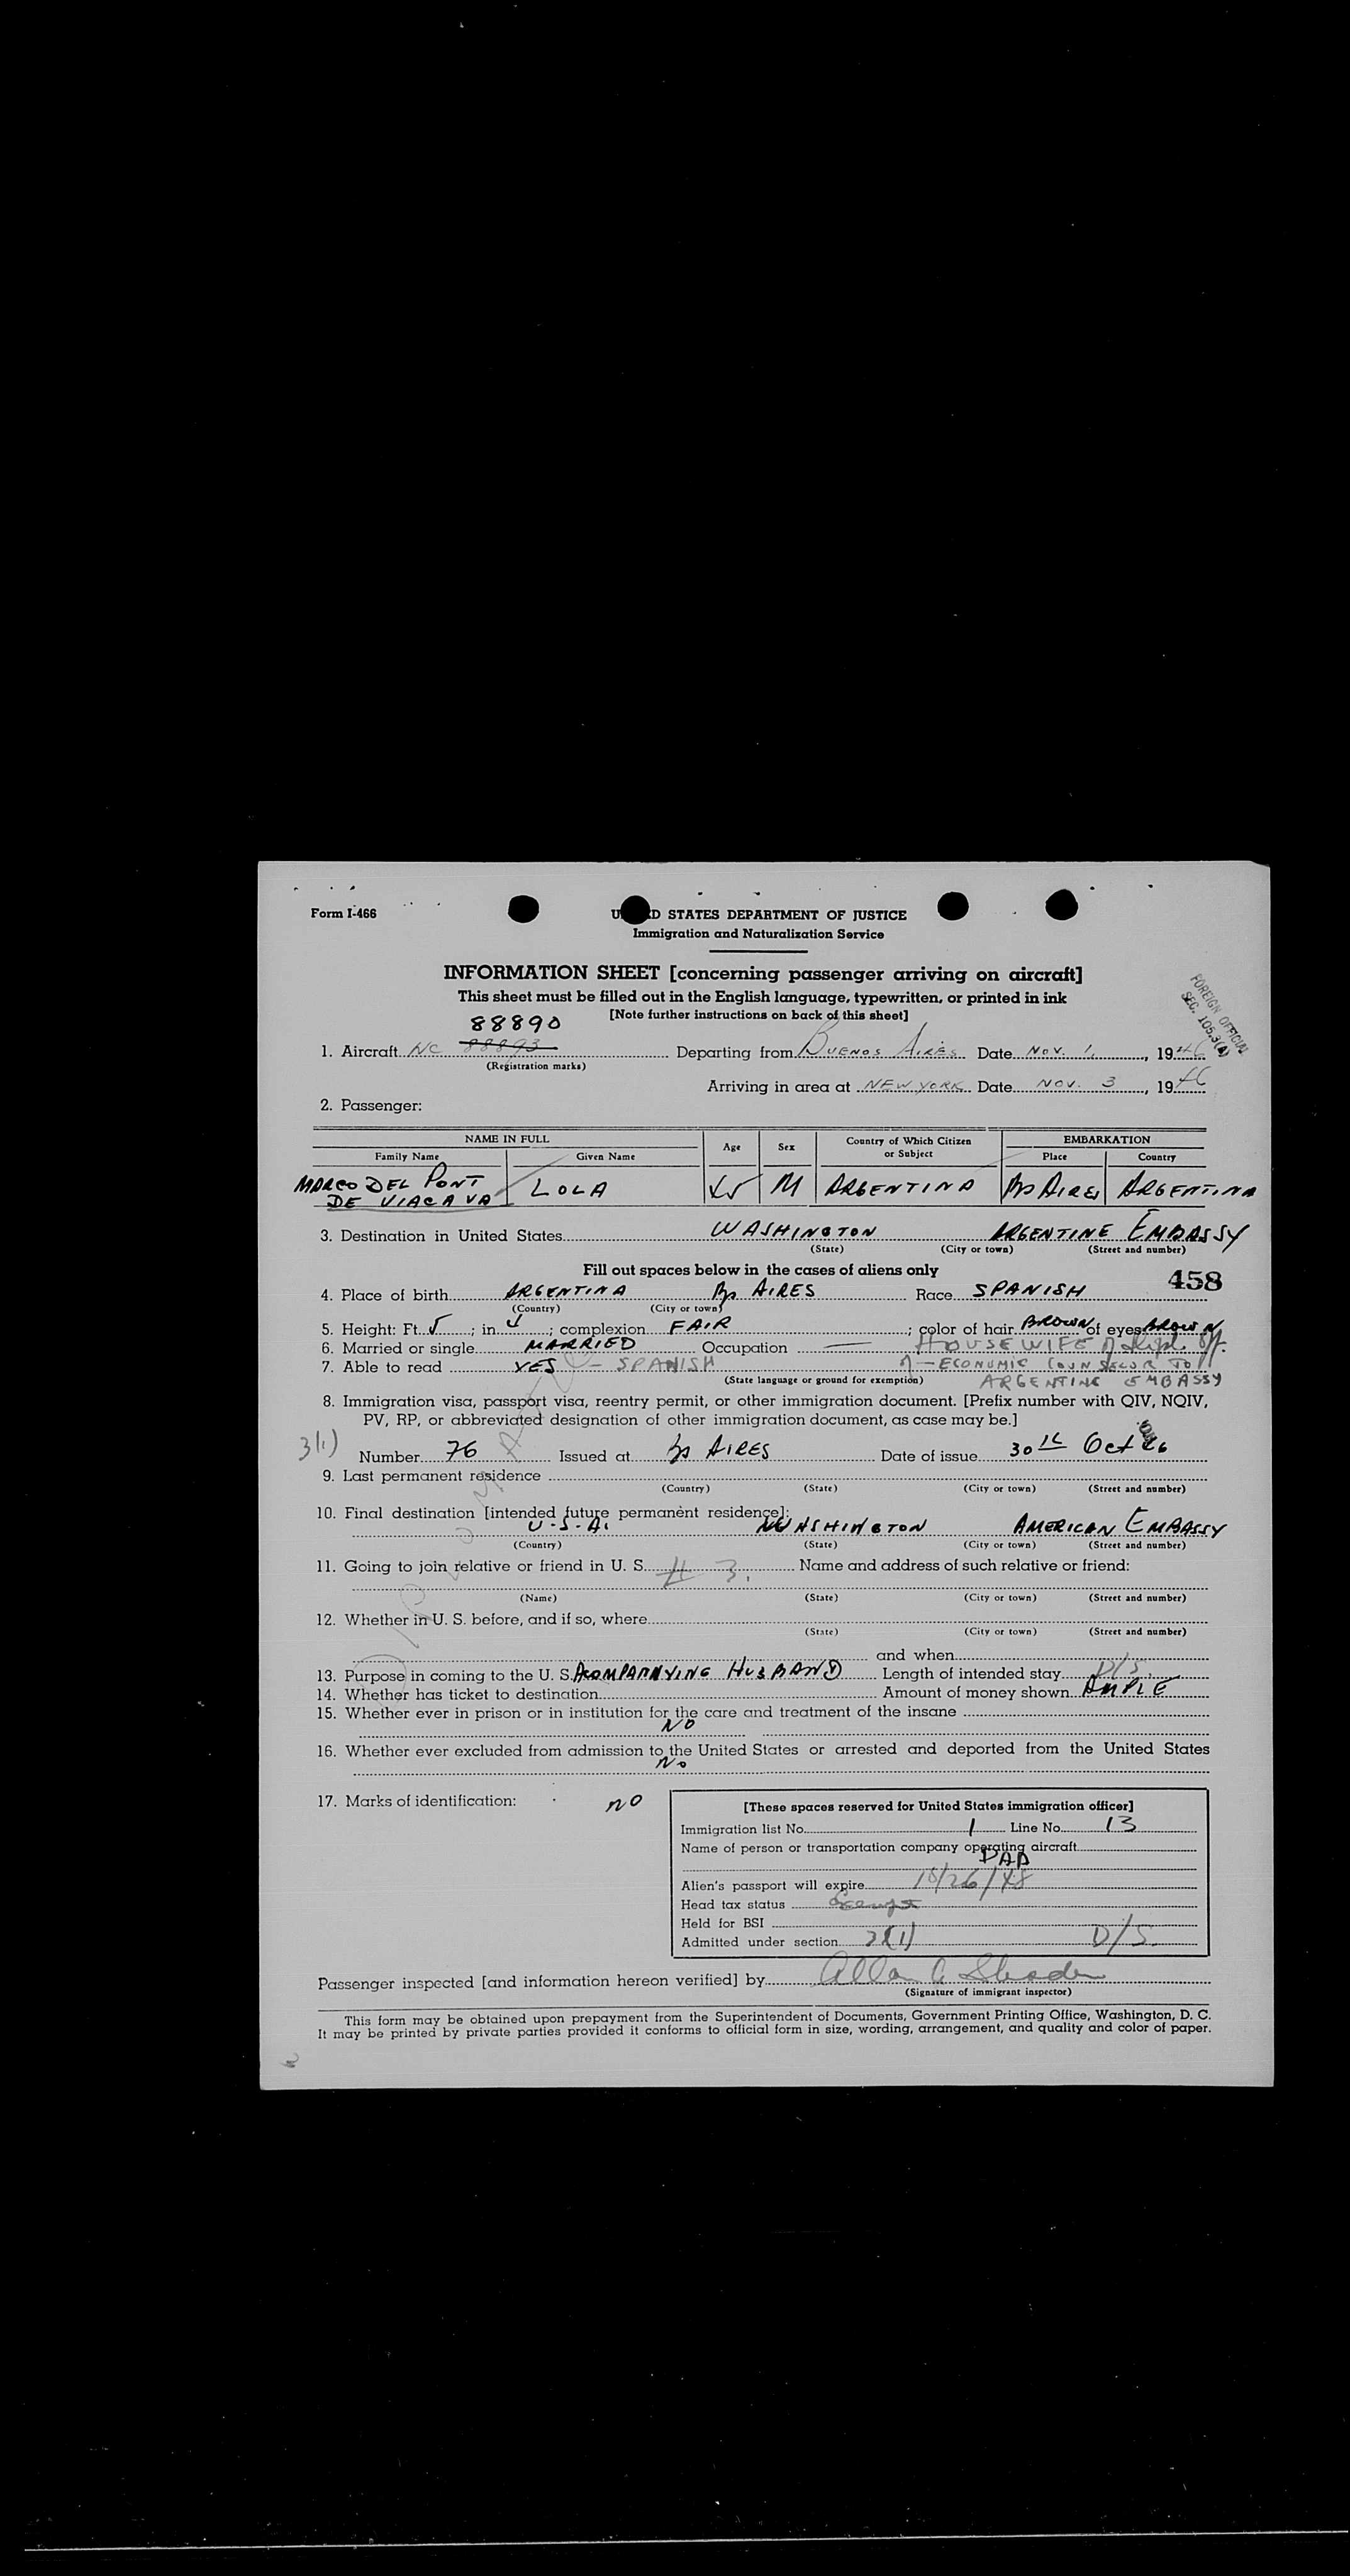 Form I-466
UNITED STATES DEPARTMENT OF JUSTICE
Immigration and Naturalization Service
INFORMATION SHEET [concerning passenger arriving on aircraft]
This sheet must be filled out in the English language, typewritten, or printed in ink
[Note further instructions on back of this sheet]
FOREIGN OFFICIAL
SEC. 105.3(A)
88890
1. Aircraft NC 88893 Departing from BUENOS AIRES Date NOV. 1, 1946
(Registration marks)
Arriving in area at NEW YORK Date NOV. 3, 1946
2. Passenger:
NAME IN FULL Age Sex Country of Which Citizen or Subject EMBARKATION
Family Name Given Name Place Country
MARCO DEL PONT
DE VIACAVA LOLA M ARGENTINA Bs AIRES ARGENTINA
3. Destination in United States WASHINGTON ARGENTINE EMBASSY
(State) (City or town) (Street and number)
Fill out spaces below in the cases of aliens only
458
4. Place of birth ARGENTINA Bs AIRES Race SPANISH
(Country) (City or town)
5. Height: Ft. 5; in. 4; complexion FAIR; color of hair BROWN of eyes BROWN
6. Married or single MARRIED Occupation — HOUSEWIFE of Off.
7. Able to read YES — SPANISH — ECONOMIC COUNSELOR TO
(State language or ground for exemption) ARGENTINE EMBASSY
8. Immigration visa, passport visa, reentry permit, or other immigration document. [Prefix number with QIV, NQIV,
PV, RP, or abbreviated designation of other immigration document, as case may be.]
3(1) Number 76 Issued at Bs AIRES Date of issue 30th Oct 46
9. Last permanent residence
(Country) (State) (City or town) (Street and number)
10. Final destination [intended future permanent residece]:
U.S.A. WASHINGTON AMERICAN EMBASSY
(Country) (State) (City or town) (Street and number)
11. Going to join relative or friend in U. S. # 3. Name and address of such relative or friend:
(Name) (State) (City or town) (Street and number)
12. Whether in U. S. before, and if so, where
(State) (City or town) (Street and number)
and when
13. Purpose in coming to the U. S. ACOMPANNYING HUSBAND Length of intended stay D/S.
14. Whether has ticket to destination Amount of money shown AMPLE
15. Whether ever in prison or in institution for the care and treatment of the insane
NO
16. Whether ever excluded from admission to the United States or arrested and deported from the United States
No
17. Marks of identification: NO
[These spaces reserved for United States immigration officer]
Immigration list No. 1 Line No. 13
Name of person or transportation company operating aircraft
PAA
Alien's passport will expire 10/26/48
Head tax status Exempt
Held for BSI
Admitted under section 3(1) D/S.
Passenger inspected [and information hereon verified] by Allan
(Signature of immigrant inspector)
This form may be obtained upon prepayment from the Superintendent of Documents, Government Printing Office, Washington, D. C.
It may be printed by private parties provided it conforms to official form in size, wording, arrangement, and quality and color of paper.